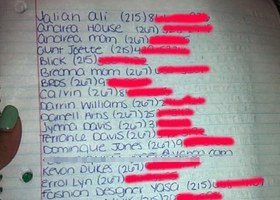 Jalian Ali (215)8
Andrea House (267)
Andrea mom (267)
Aunt Joette (215)4
Blick (215)
Brenna mom (267)
BROS (267)9
Calvin (267)8
Darrin Williams (267)2
Darnell Artis (267)25
Jyema Davis (267)3
Terrance Davis (267)
Dominique Jones (267)9
@yahoo.com
Kevon Dukes (267)
Errol Lyn (267)
Fashion Designer Yasa (215)6